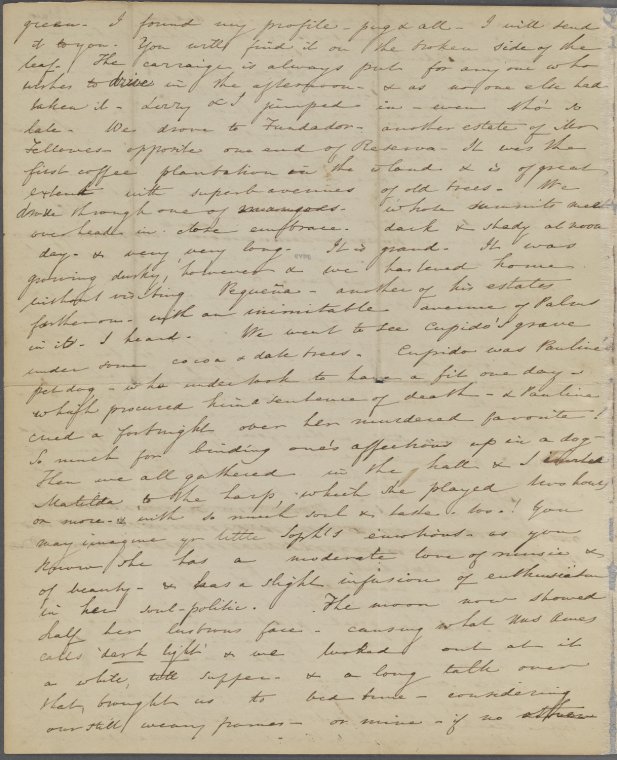 green - I found my profile - pug & all - I will send
it to you. You will find it on the broken side of the
leaf. The carraige is always put for any one who
wishes to drive in the afternoon - & as no one else had
taken it - Lizzy & I jumped in - even tho' so
late - We drove to Fundador - another estate of Mr
Fellowes opposite one end of Reserva - It was the
first coffee plantation in the island & is of great
extent with superb avenues of old trees. We
drove through one of mangoes - whose summits meet
overhead in close embrace. dark & shady at noon
day - & very, very long - It is grand. It was
growing dusky, however & we hastened home
without visiting Pequeña - another of his estates
farther on - with an inimitable avenue of Palms
in it - I heard. We went to see Cupido's grave
under some cocoa & date trees - Cupido was Pauline's
pet dog - who undertook to have a fit one day -
which procured him a sentence of death - & Pauline
cried a fortnight over her murdered favorite - !
So much for binding one's affections up in a dog -
Then we all gathered in the hall & I
Matilda to the harp, which she played two hours
or more - & with so much soul & taste too - ! You
may imagine yr little Soph's emotions - as you
know she has a moderate love of music &
of beauty - & has a slight infusion of enthusiasm
in her soul-politic. The moon now showed
half her lustrous face - causing what Mrs Ames
calls 'dark light' & we looked out at it
a while, till supper - & a long talk over
that, brought us to bed time - considering
our still weary frames - or mine - if no others